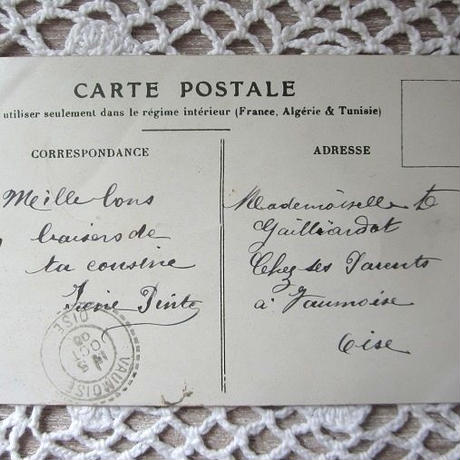 CARTE POSTALE
utiliser seulement dans le régime intérieur (France, Algérie & Tunisie)
CORRESPONDANCE
Meille bons
baisers de
ta cousine
ADRESSE
Mademoiselle
Gailliardot
Chez ses Parents
à Vaumoise
Oise
VAUMOISE
OISE
5
OCT
08